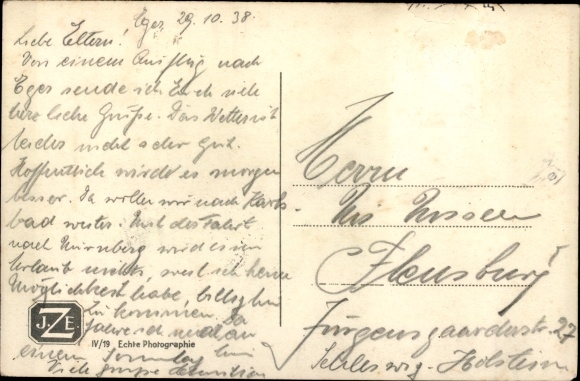 Eger 29.10.38.
Liebe Eltern!
Von einem Ausflug nach
Eger sende ich Euch viele
herzliche Grüße. Das Wetter ist
leider nicht sehr gut.
Hoffentlich wird es morgen
besser. Da wollen wir nach Karls-
bad weiter. Mit der Fahrt
nach Nürnberg wird es im
Urlaub nichts, weil ich keine
Möglichkeit habe, billig hin
zu kommen. Da
fahre ich mal an
einem Sonntag hin
Viele Grüße
JZE
IV/19 Echte Photographie
Herrn
Nissen
Flensburg
Jürgensgaarderstr. 27
Schleswig-Holstein